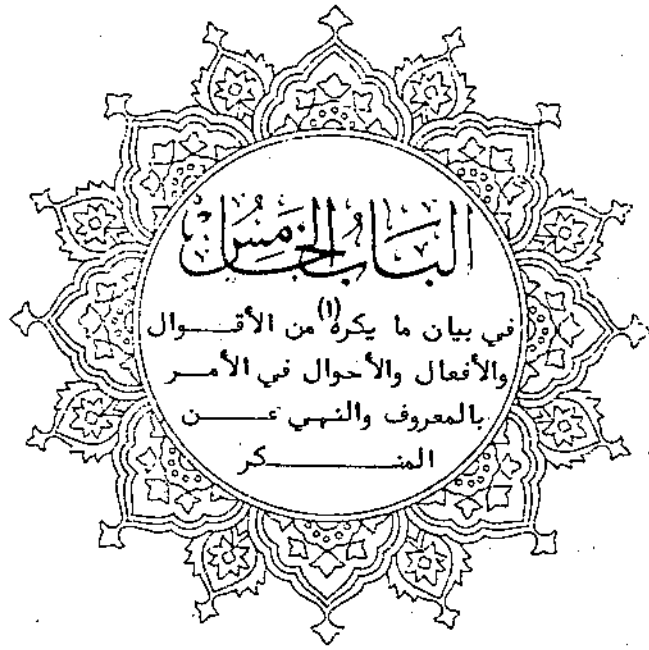 الباب الخامس
في بيان ما يكره(١) من الأقـــوال
والأفعال والأحوال في الأمـــر
بالمعروف والنهي عـــن
المنـــــكر